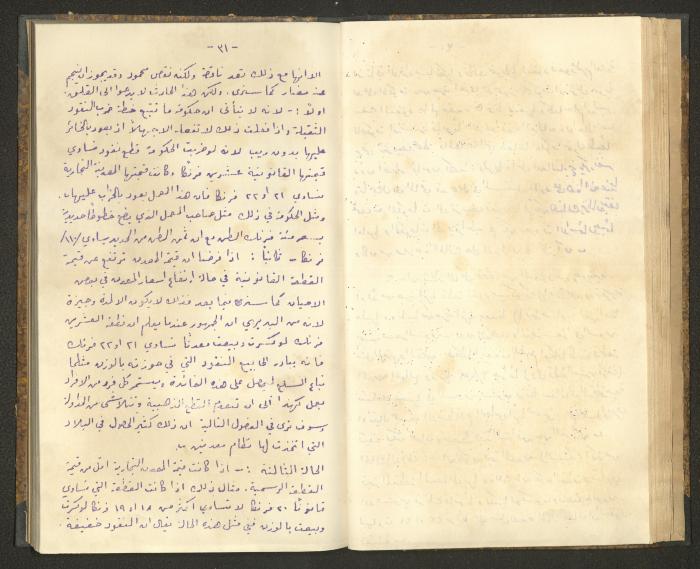 - ٣١ -
الا انها مع ذلك تعد ناقصة ولكنه نقص محمود وقد يجوز ان ينجم
عنه مضار كما سنرى. ولكن هذا الحادث لا يدعوا الى القلق.
اولاً :- لانه لا يتأتى ان حكومة ما تتبع خطة ضرب النقود
الثقيلة واذا فعلت ذلك لا تفعله الا اذ يعود بالخسائر
عليها بدون ريب لانه لو ضربت الحكومة قطع نقود تساوي
قيمتها القانونية عشرين فرنكاً وكانت قيمتها المعدنية التجارية
تساوي ٢١ او ٢٢ فرنكاً فان هذا العمل يعود بالخراب عليها.
ومثل الحكومة في ذلك مثل صاحب المعمل الذي يضع خطوطاً حديدية
بسعر مئة فرنك الطن مع ان ثمن الطن من الحديد يساوي /١١٠/
فرنكا - ثانياً : اذا فرضنا ان قيمة المعدن ترتفع عن قيمة
القطعة القانونية في حالة ارتفاع اسعار المعدن في بعض
الاحيان كما سنرى فيما بعد فذلك لا يكون الا لمدة وجيزة
لانه من البديهي ان الجمهور عندما يعلم ان قطعة العشرين
فرنك لو كسرت وبيعت معدناً تساوي ٢١ او ٢٢ فرنك
فانه يبادر الى بيع النقود التي في حوزته بالوزن مثلما
تباع السلع ليحصل على هذه الفائدة ويستمر كل فرد من الافراد
بعمل كهذا الى ان تنعدم القطع الذهبية وتتلاشى من التداول
وسوف نرى في الفصول التالية ان ذلك كثير الحصول في البلاد
التي اتخذت لها نظام معدنين
الحالة الثالثة :- اذا كانت قيمة المعدن التجارية اقل من قيمة
القطعة الرسمية. مثال ذلك اذا كانت القطعة التي تساوي
قانوناً ٢٠ فرنكا لا تساوي اكثر من ١٨ او ١٩ فرنكا لو كسرت
وبيعت بالوزن في مثل هذه الحالة يقال ان النقود خفيفة.